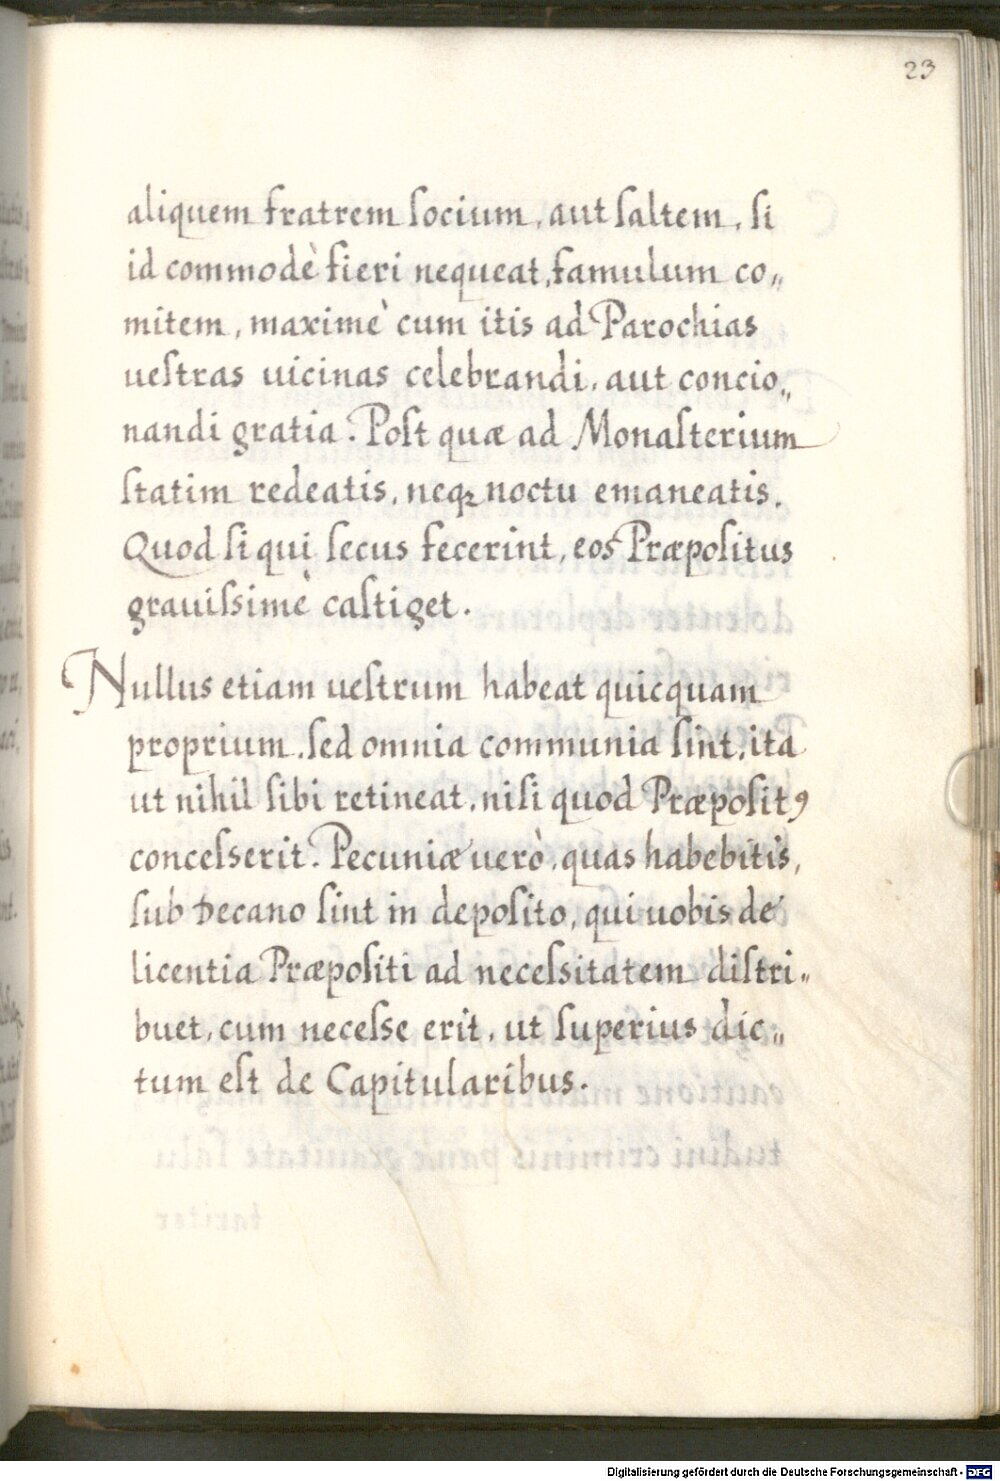 23
aliquem fratrem ſocium, aut ſaltem, ſi
id commodè fieri nequeat, famulum co„
mitem, maximè cum itis ad Parochias
ueſtras uicinas celebrandi, aut concio„
nandi gratia. Poſt quæ ad Monaſterium
ſtatim redeatis, neqꝫ noctu emaneatis.
Quod ſi qui ſecus fecerint, eos Præpoſitus
grauiſsimè caſtiget.
Nullus etiam ueſtrum habeat quicquam
proprium, ſed omnia communia ſint, ita
ut nihil ſibi retineat, niſi quod Præpoſitꝰ
conceſserit. Pecuniæ uerò, quas habebitis,
ſub Decano ſint in depoſito, qui uobis de
licentia Præpoſiti ad neceſsitatem diſtri„
buet, cum neceſse erit, ut ſuperius dic„
tum eſt de Capitularibus.
Digitalisierung gefördert durch die Deutsche Forschungsgemeinschaft - DFG